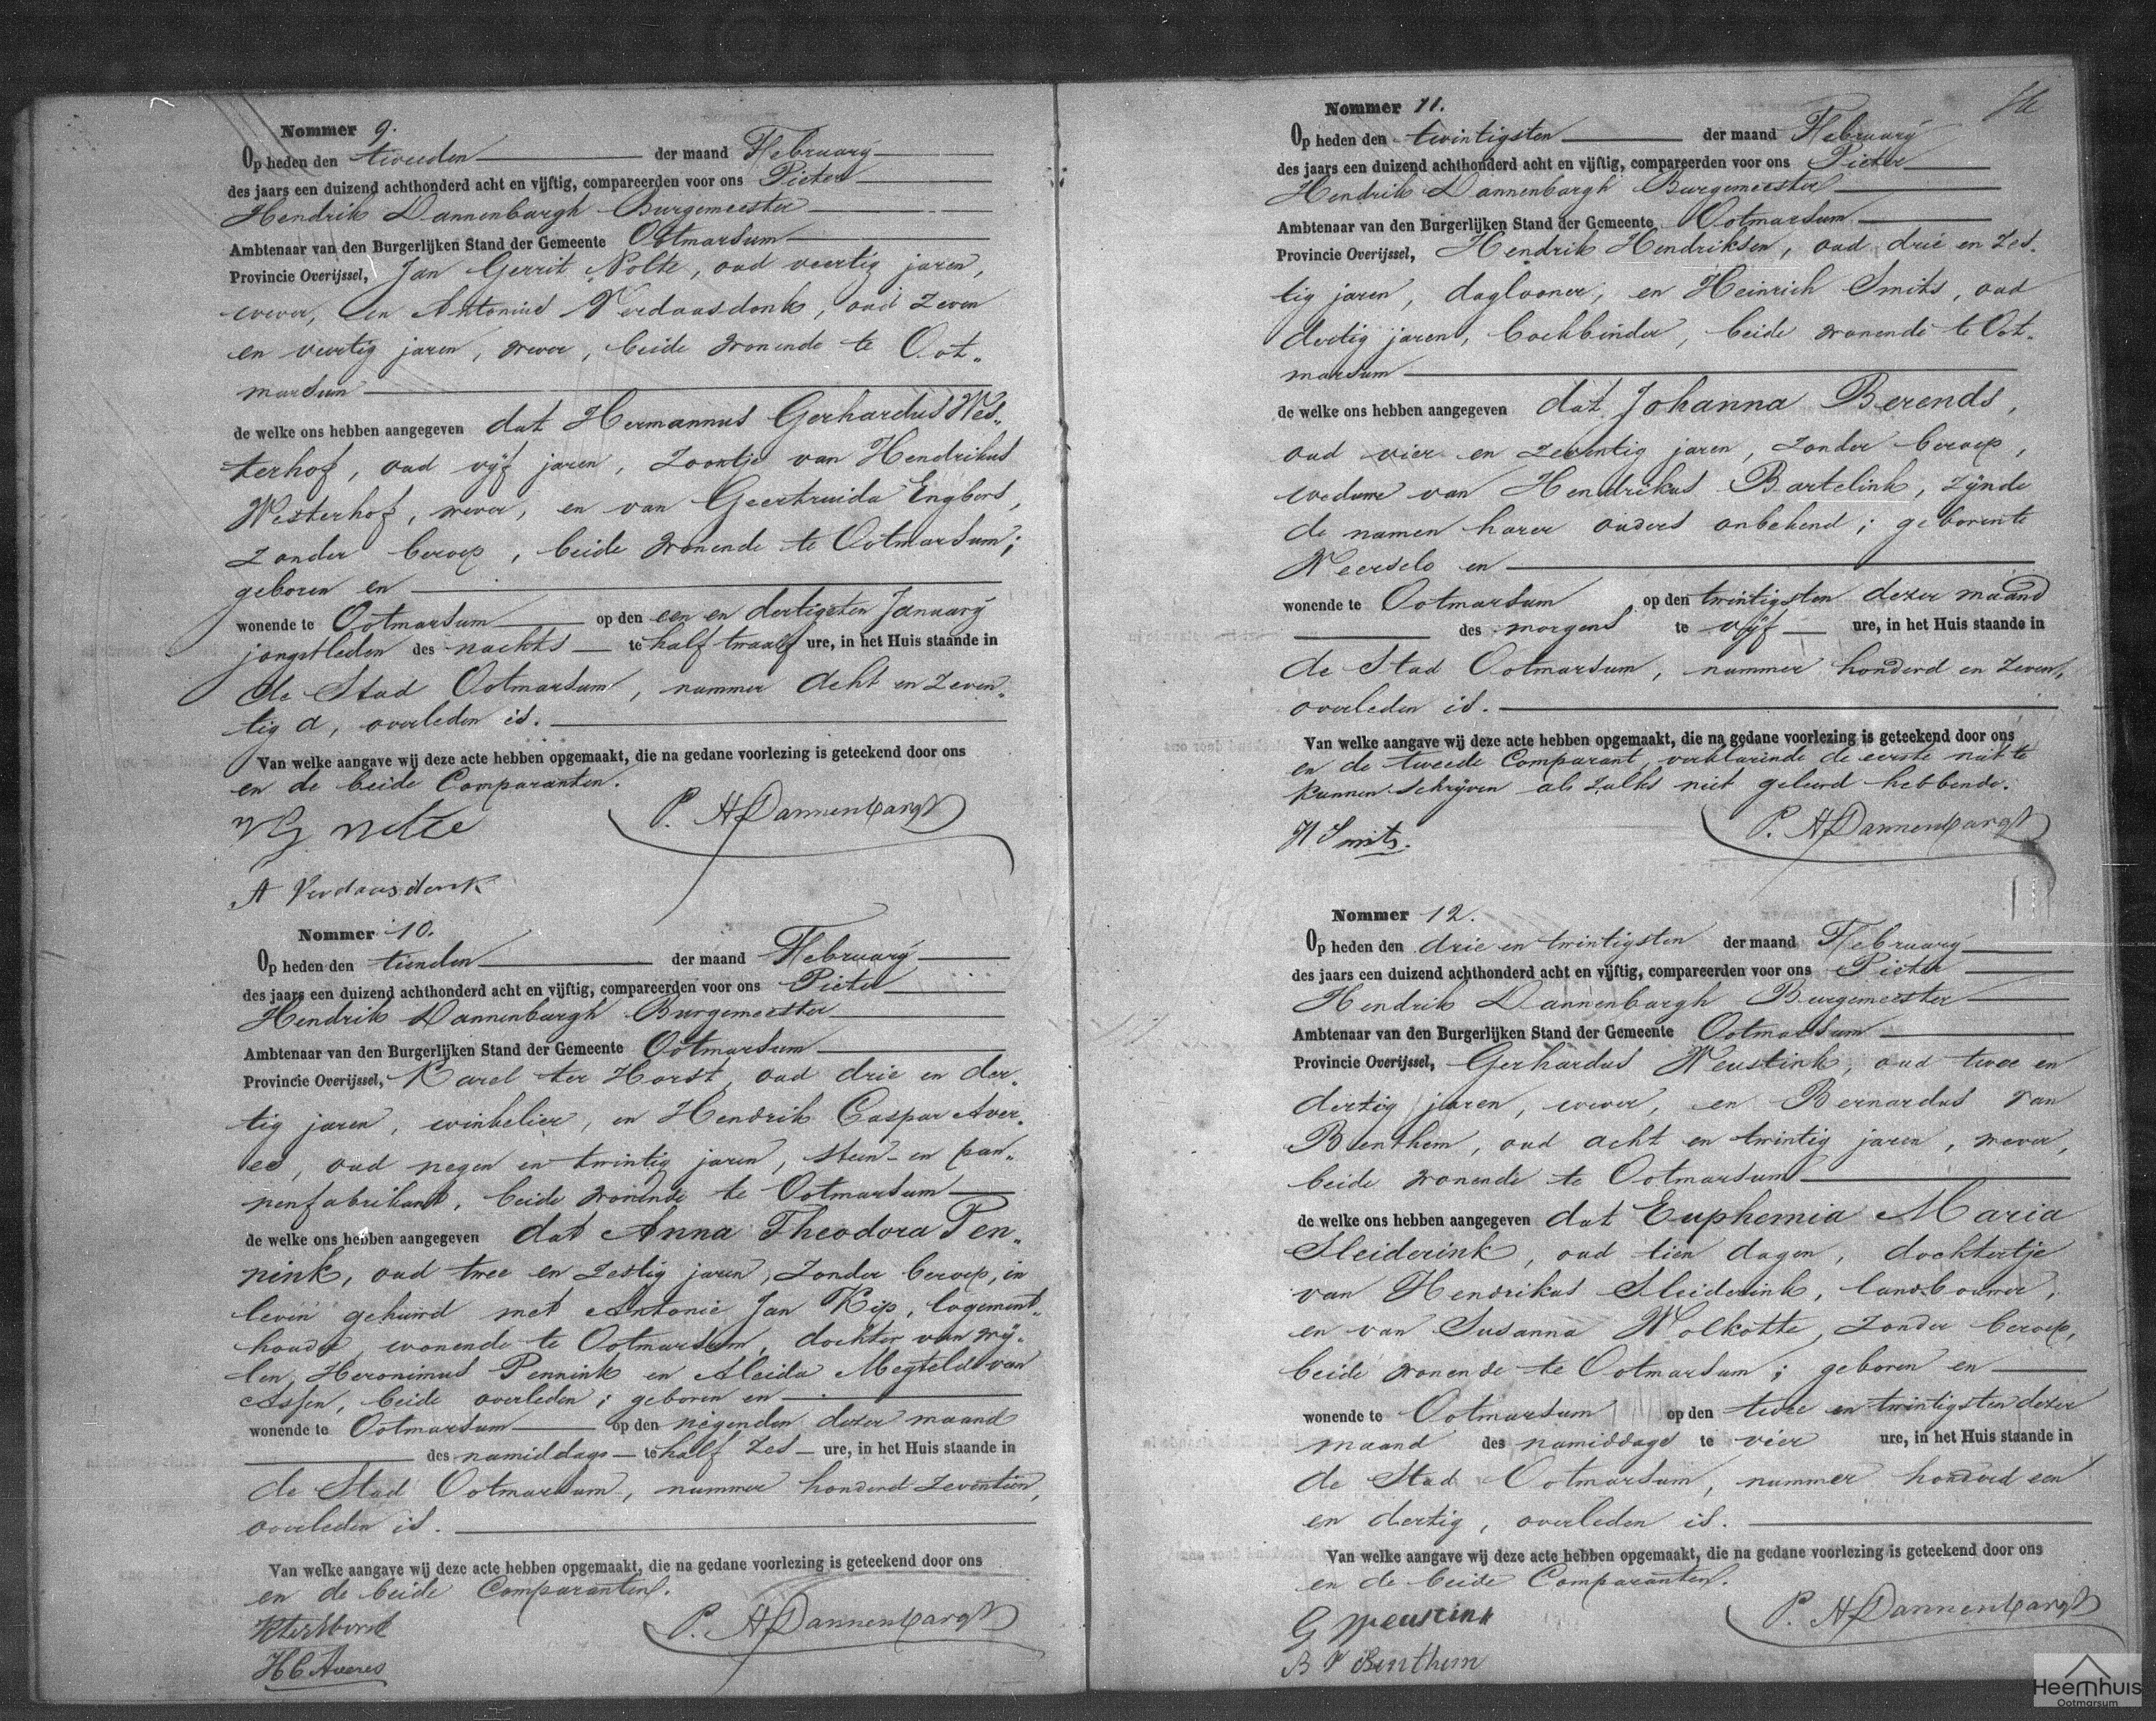 Nommer 9.
Op heden den tweeden der maand February
des jaars een duizend achthonderd acht en vijftig, compareerden voor ons Pieter
Hendrik Dannenbargh Burgemeester
Ambtenaar van den Burgerlijken Stand der Gemeente Ootmarsum
Provincie Overijssel, Jan Gerrit Nolte, oud veertig jaren,
wever, en Antonius Verdaasdonk, oud zeven
en veertig jaren, wever, beide wonende te Oot-
marsum
de welke ons hebben aangegeven dat Hermannus Gerhardus Wes-
terhof, oud vyf jaren, zoontje van Hendrikus
Westerhof, wever, en van Geertruida Engbers,
zonder beroep, beide wonende te Ootmarsum;
geboren en
wonende te Ootmarsum op den een en dertigsten January
jongstleden des nachts te half twaalf ure, in het Huis staande in
de Stad Ootmarsum, nummer acht en zeven-
tig a, overleden is.
Van welke aangave wij deze acte hebben opgemaakt, die na gedane voorlezing is geteekend door ons
en de beide Comparanten.
P. H Dannenbargh
A Verdaasdonk
Nommer 10.
Op heden den tienden der maand February
des jaars een duizend achthonderd acht en vijftig, compareerden voor ons Pieter
Hendrik Dannenbargh Burgemeester
Ambtenaar van den Burgerlijken Stand der Gemeente Ootmarsum
Provincie Overijssel, Karel ter Horst, oud drie en der-
tig jaren, winkelier, en Hendrik Caspar Aver-
es, oud negen en twintig jaren, steen- en pan-
nenfabrikant, beide wonende te Ootmarsum
de welke ons hebben aangegeven dat Anna Theodora Pen-
nink, oud twee en zestig jaren, zonder beroep, in
leven gehuwd met Antonie Jan Kip, logement-
houder, wonende te Ootmarsum, dochter van wy-
len Heronimus Pennink en Aleida Megteld van
Assen, beide overleden; geboren en
wonende te Ootmarsum op den negenden dezer maand
des namiddags te half zes ure, in het Huis staande in
de Stad Ootmarsum, nummer honderd zeventien,
overleden is.
Van welke aangave wij deze acte hebben opgemaakt, die na gedane voorlezing is geteekend door ons
en de beide Comparanten.
K ter Horst
P. H Dannenbargh
H C Averes
Nommer 11.
Op heden den twintigsten der maand February
des jaars een duizend achthonderd acht en vijftig, compareerden voor ons Pieter
Hendrik Dannenbargh Burgemeester
Ambtenaar van den Burgerlijken Stand der Gemeente Ootmarsum
Provincie Overijssel, Hendrik Hendriksen, oud drie en zes-
tig jaren, daglooner, en Heinrich Smits, oud
dertig jaren, boekbinder, beide wonende te Oot-
marsum
de welke ons hebben aangegeven dat Johanna Berends,
oud vier en zeventig jaren, zonder beroep,
weduwe van Hendrikus Bartelink, zynde
de namen harer ouders onbekend; geboren te
Weerselo en
wonende te Ootmarsum op den twintigsten dezer maand
des morgens te vyf ure, in het Huis staande in
de Stad Ootmarsum, nummer honderd en zeven,
overleden is.
Van welke aangave wij deze acte hebben opgemaakt, die na gedane voorlezing is geteekend door ons
en de tweede Comparant, verklarende de eerste niet te
kunnen schryven als zulks niet geleerd hebbende.
P. H Dannenbargh
H Smits.
Nommer 12.
Op heden den drie en twintigsten der maand February
des jaars een duizend achthonderd acht en vijftig, compareerden voor ons Pieter
Hendrik Dannenbargh Burgemeester
Ambtenaar van den Burgerlijken Stand der Gemeente Ootmarsum
Provincie Overijssel, Gerhardus Weustink, oud twee en
dertig jaren, wever, en Bernardus van
Benthem, oud acht en twintig jaren, wever,
beide wonende te Ootmarsum
de welke ons hebben aangegeven dat Euphemia Maria
Sleiderink, oud tien dagen, dochtertje
van Hendrikus Sleiderink, landbouwer,
en van Susanna Wolkotte, zonder beroep,
beide wonende te Ootmarsum; geboren en
wonende te Ootmarsum op den twee en twintigsten dezer
maand des namiddags te vier ure, in het Huis staande in
de Stad Ootmarsum, nummer honderd een
en dertig, overleden is.
Van welke aangave wij deze acte hebben opgemaakt, die na gedane voorlezing is geteekend door ons
en de beide Comparanten.
G Weustink
P. H Dannenbargh
B V Benthem
Heemhuis
Ootmarsum